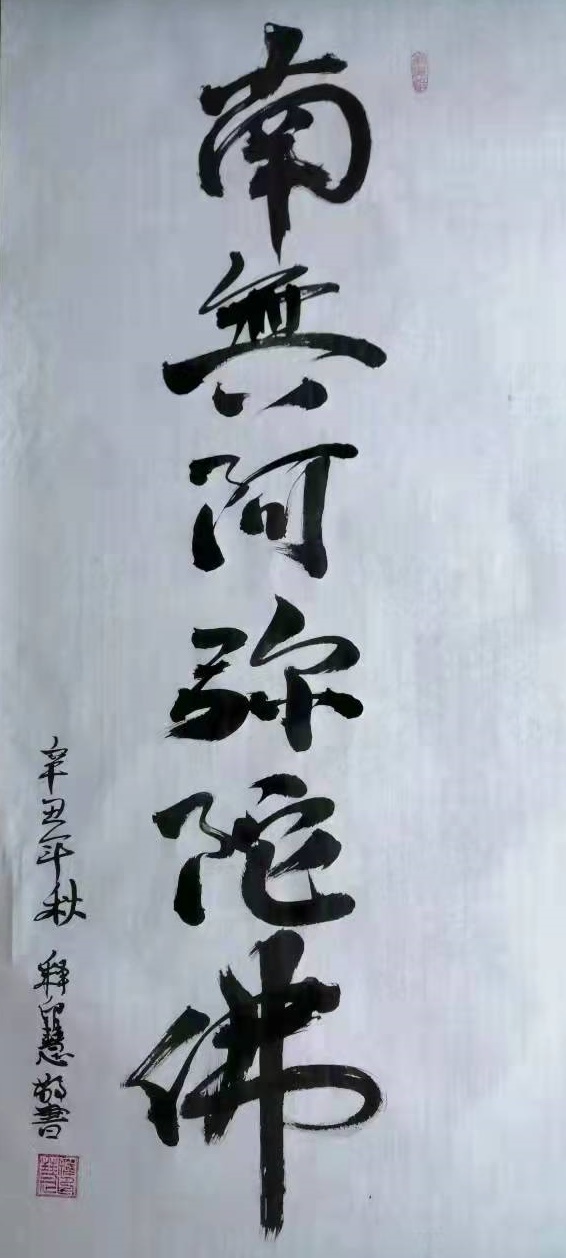 南無阿弥陀佛
辛丑年秋 釋印慧敬書